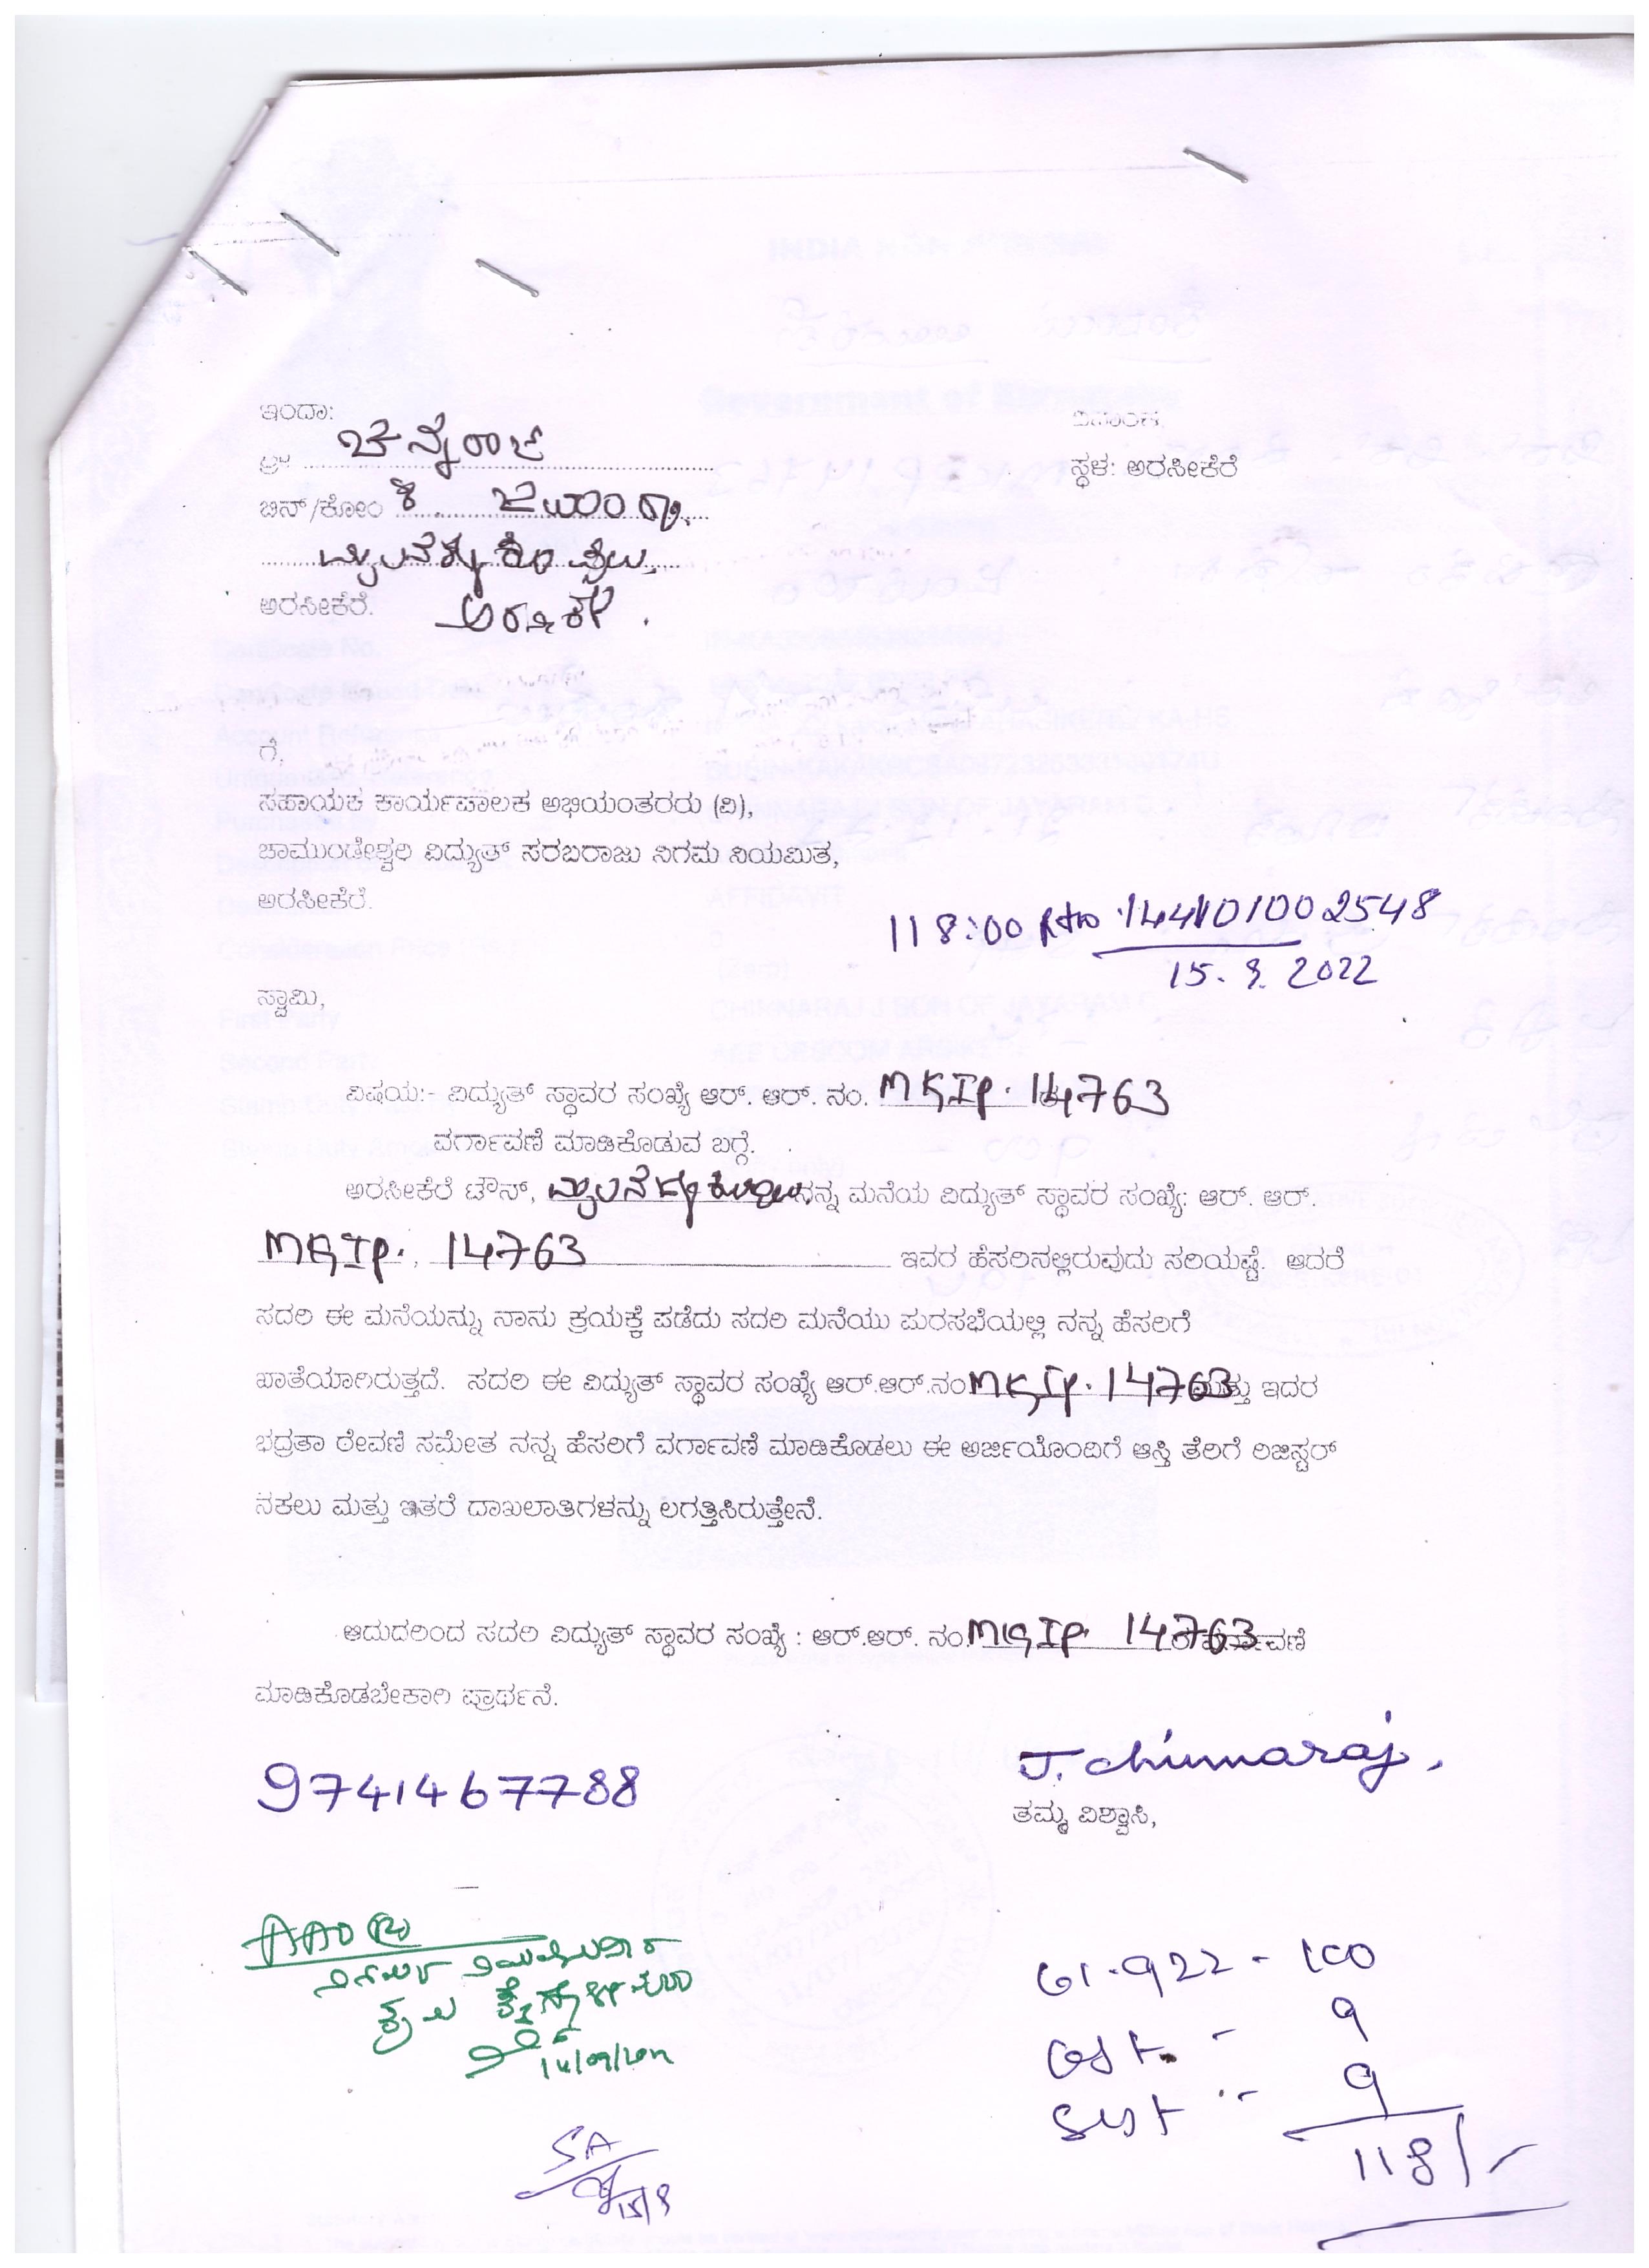 ಇಂದಾ:
ಶ್ರೀ ಚನ್ನರಾಜ
ದಿನಾಂಕ:
ಸ್ಥಳ: ಅರಸೀಕೆರೆ
ಬಿನ್/ಕೋಂ
ಅರಸೀಕೆರೆ.
ಗೆ,
ಸಹಾಯಕ ಕಾರ್ಯಪಾಲಕ ಅಭಿಯಂತರರು (ವಿ),
ಚಾಮುಂಡೇಶ್ವರಿ ವಿದ್ಯುತ್ ಸರಬರಾಜು ನಿಗಮ ನಿಯಮಿತ,
ಅರಸೀಕೆರೆ.
118:00 14410100 2548
15.9.2022
ಸ್ವಾಮಿ,
ವಿಷಯ:- ವಿದ್ಯುತ್ ಸ್ಥಾವರ ಸಂಖ್ಯೆ ಆರ್. ಆರ್. ನಂ. MGIP. 14763
ವರ್ಗಾವಣೆ ಮಾಡಿಕೊಡುವ ಬಗ್ಗೆ.
ಅರಸೀಕೆರೆ ಟೌನ್, ನನ್ನ ಮನೆಯ ವಿದ್ಯುತ್ ಸ್ಥಾವರ ಸಂಖ್ಯೆ: ಆರ್. ಆರ್.
MGIP. 14763 ಇವರ ಹೆಸರಿನಲ್ಲಿರುವುದು ಸರಿಯಷ್ಟೆ. ಆದರೆ
ಸದರಿ ಈ ಮನೆಯನ್ನು ನಾನು ಕ್ರಯಕ್ಕೆ ಪಡೆದು ಸದರಿ ಮನೆಯು ಪುರಸಭೆಯಲ್ಲಿ ನನ್ನ ಹೆಸರಿಗೆ
ಖಾತೆಯಾಗಿರುತ್ತದೆ. ಸದರಿ ಈ ವಿದ್ಯುತ್ ಸ್ಥಾವರ ಸಂಖ್ಯೆ ಆರ್.ಆರ್.ನಂ MGIP. 14763 ಮತ್ತು ಇದರ
ಭದ್ರತಾ ಠೇವಣಿ ಸಮೇತ ನನ್ನ ಹೆಸರಿಗೆ ವರ್ಗಾವಣೆ ಮಾಡಿಕೊಡಲು ಈ ಅರ್ಜಿಯೊಂದಿಗೆ ಆಸ್ತಿ ತೆರಿಗೆ ರಿಜಿಸ್ಟರ್
ನಕಲು ಮತ್ತು ಇತರೆ ದಾಖಲಾತಿಗಳನ್ನು ಲಗತ್ತಿಸಿರುತ್ತೇನೆ.
ಆದುದರಿಂದ ಸದರಿ ವಿದ್ಯುತ್ ಸ್ಥಾವರ ಸಂಖ್ಯೆ : ಆರ್.ಆರ್. ನಂ. MGIP. 14763 ವರ್ಗಾವಣೆ
ಮಾಡಿಕೊಡಬೇಕಾಗಿ ಪ್ರಾರ್ಥನೆ.
9741467788
J. chinnaraj.
ತಮ್ಮ ವಿಶ್ವಾಸಿ,
AAO
61.922 - 100
Cgst - 9
Sgst - 9
118/-
SA
15/9